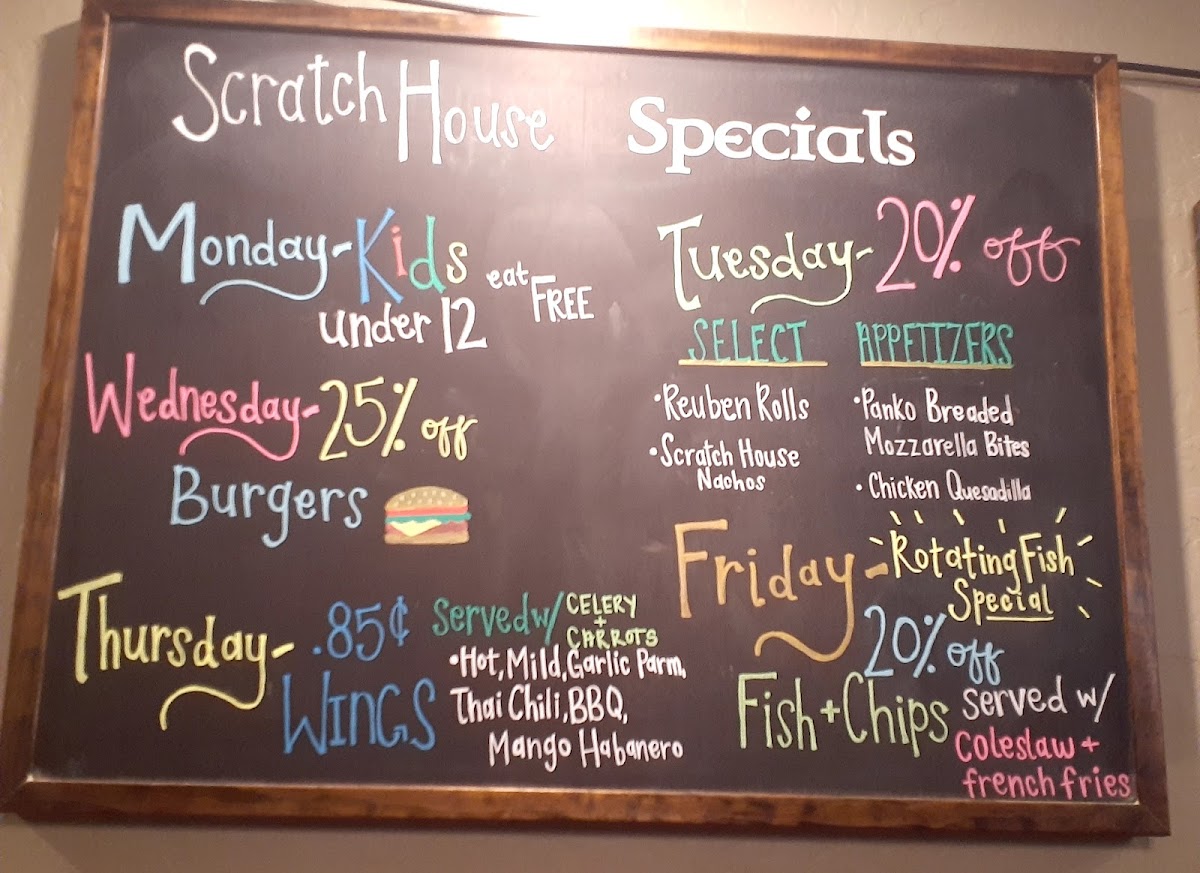 Scratch House Specials
Monday- Kids eat FREE
under 12
Tuesday- 20% off
SELECT APPETIZERS
• Reuben Rolls
• Scratch House
Nachos
• Panko Breaded
Mozzarella Bites
• Chicken Quesadilla
Wednesday- 25% off
Burgers
Thursday- .85¢
WINGS
Served w/ CELERY
+
CARROTS
• Hot, Mild, Garlic Parm,
Thai Chili, BBQ,
Mango Habanero
Friday- Rotating Fish
Special
20% off
Fish + Chips served w/
coleslaw +
french fries